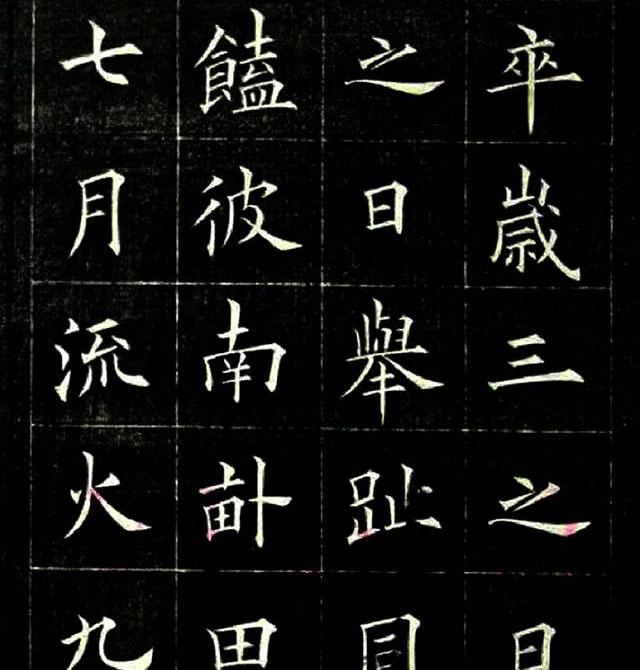 卒嵗三之日
之日舉趾同
饁彼南畝田
七月流火九